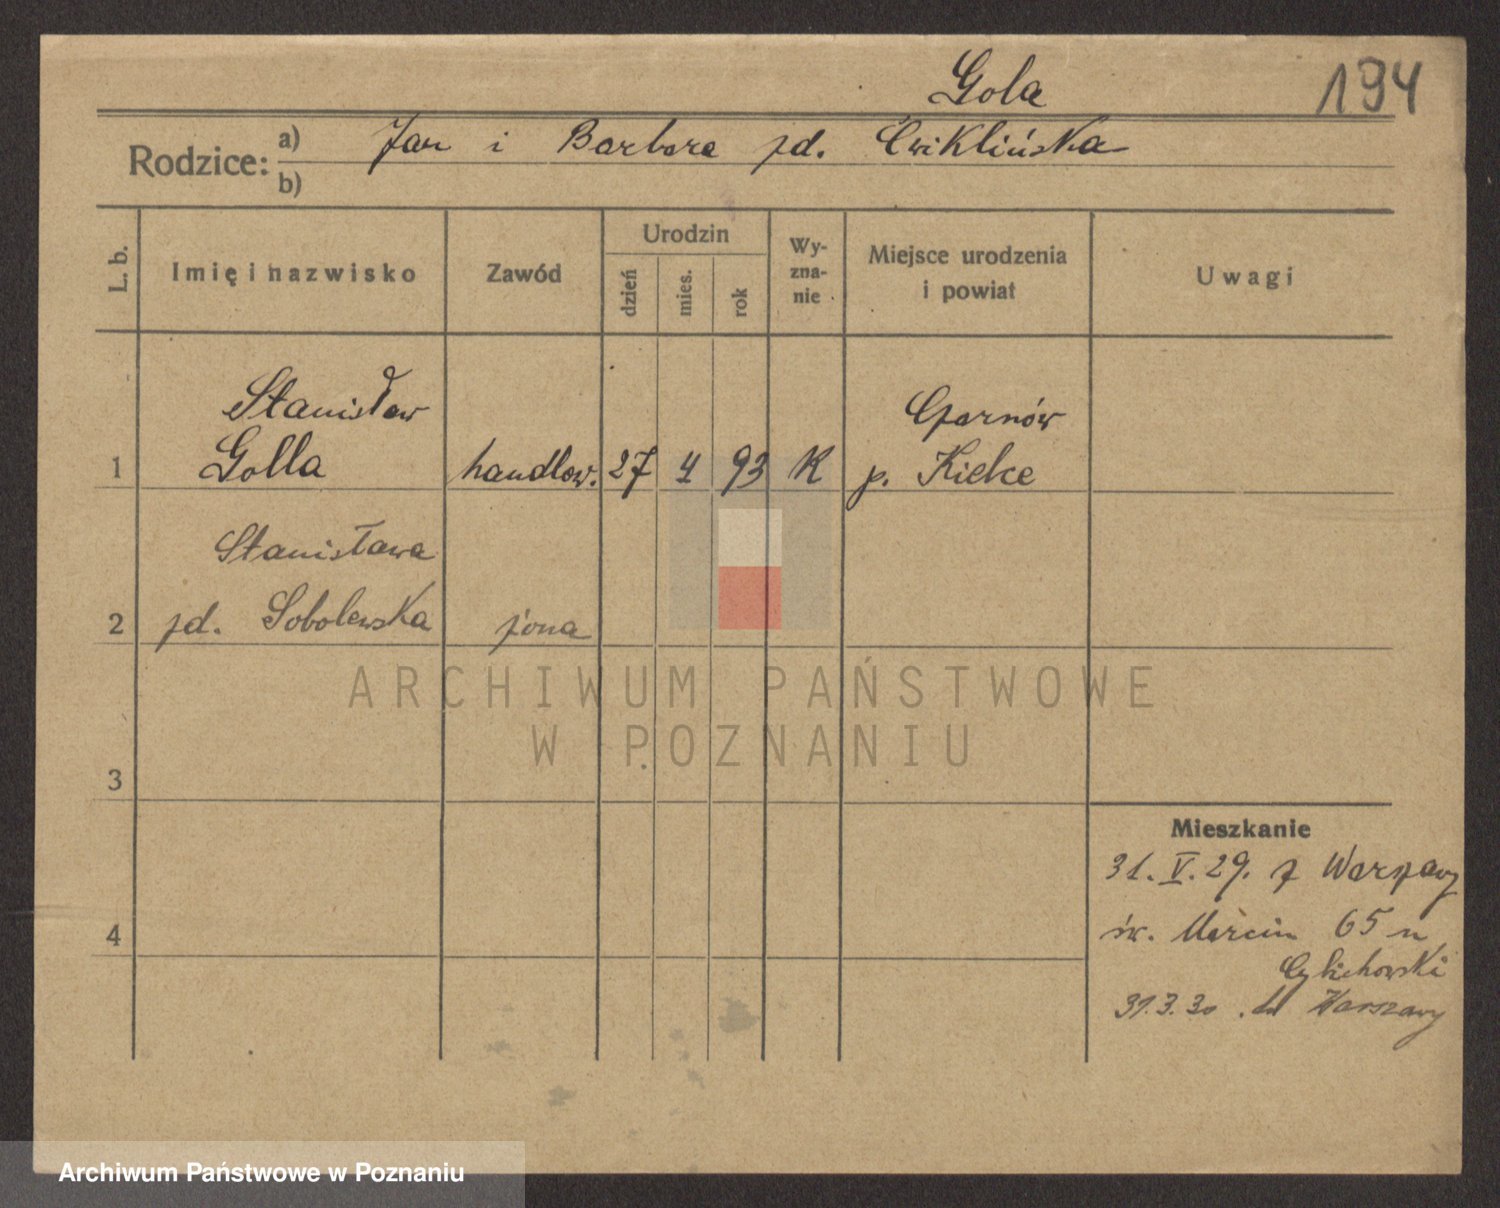 Gola
194
Rodzice:
a) Jan i Barbara zd. Ćwiklińska
b)
L. b.
Imię i nazwisko
Zawód
Urodzin
dzień
mies.
rok
Wy-
zna-
nie
Miejsce urodzenia
i powiat
Uwagi
Stanisław
Golla
Czarnów
1 handlow. 27 4 93 K p. Kielce
Stanisława
2 zd. Sobolewska żona
3
4
Mieszkanie
31. V. 29. z Warszawy
św. Marcin 65 u
31.3.30 do Warszawy
ARCHIWUM PAŃSTWOWE
W POZNANIU
Archiwum Państwowe w Poznaniu